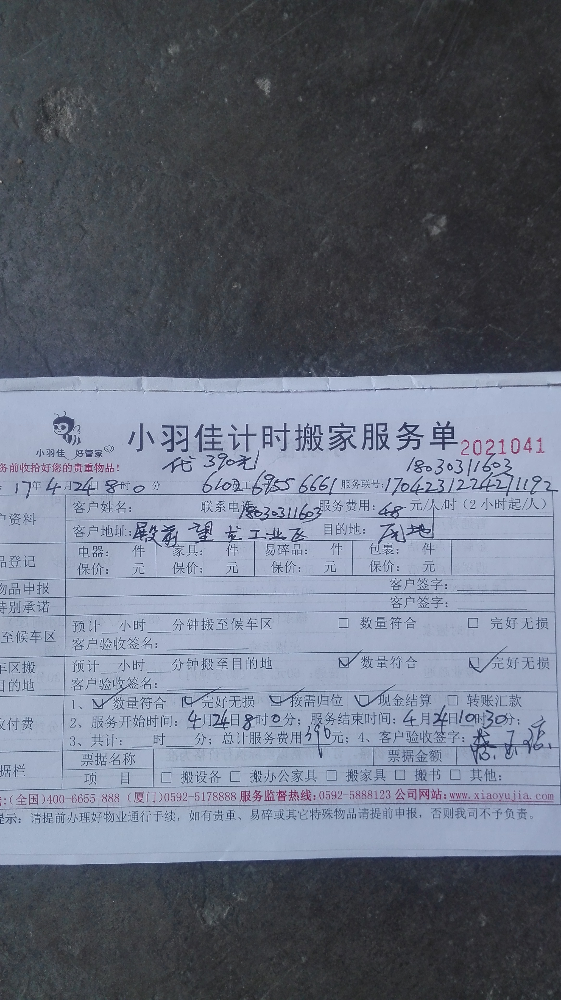 小羽佳 好管家
小羽佳计时搬家服务单 2021041
务前收拾好您的贵重物品!
代 390元 18030311603
17年4月24日8时0分 6955 6661 服务联号:17042312242711192
户资料 客户姓名: 联系电话 18030311603 服务费用:48元/人/时(2小时起/人)
客户地址: 殿前 工业区 目的地:
品登记 电器: 件 家具: 件 易碎品: 件 包裹: 件
保价: 元 保价: 元 保价: 元 保价: 元
物品申报 客户签字:
特别承诺 客户签字:
至候车区 预计 小时 分钟搬至候车区 □ 数量符合 □ 完好无损
客户验收签名:
车区搬 预计 小时 分钟搬至目的地 ☑ 数量符合 ☑ 完好无损
目的地 客户验收签名:
付费 1、☑ 数量符合 ☑ 完好无损 ☑ 按需归位 ☑ 现金结算 □ 转账汇款
2、服务开始时间:4月24日8时0分;服务结束时间:4月24日10时30分;
3、共计: 时 分;总计服务费用390元;4、客户验收签字:
据栏 票据名称 票据金额
项 目 □ 搬设备 □ 搬办公家具 □ 搬家具 □ 搬书 □ 其他:
:(全国)400-6655 888 (厦门)0592-5178888 服务监督热线:0592-5888123 公司网站:www.xiaoyujia.com
提示:请提前办理好物业通行手续,如有贵重、易碎或其它特殊物品请提前申报,否则我司不予负责。